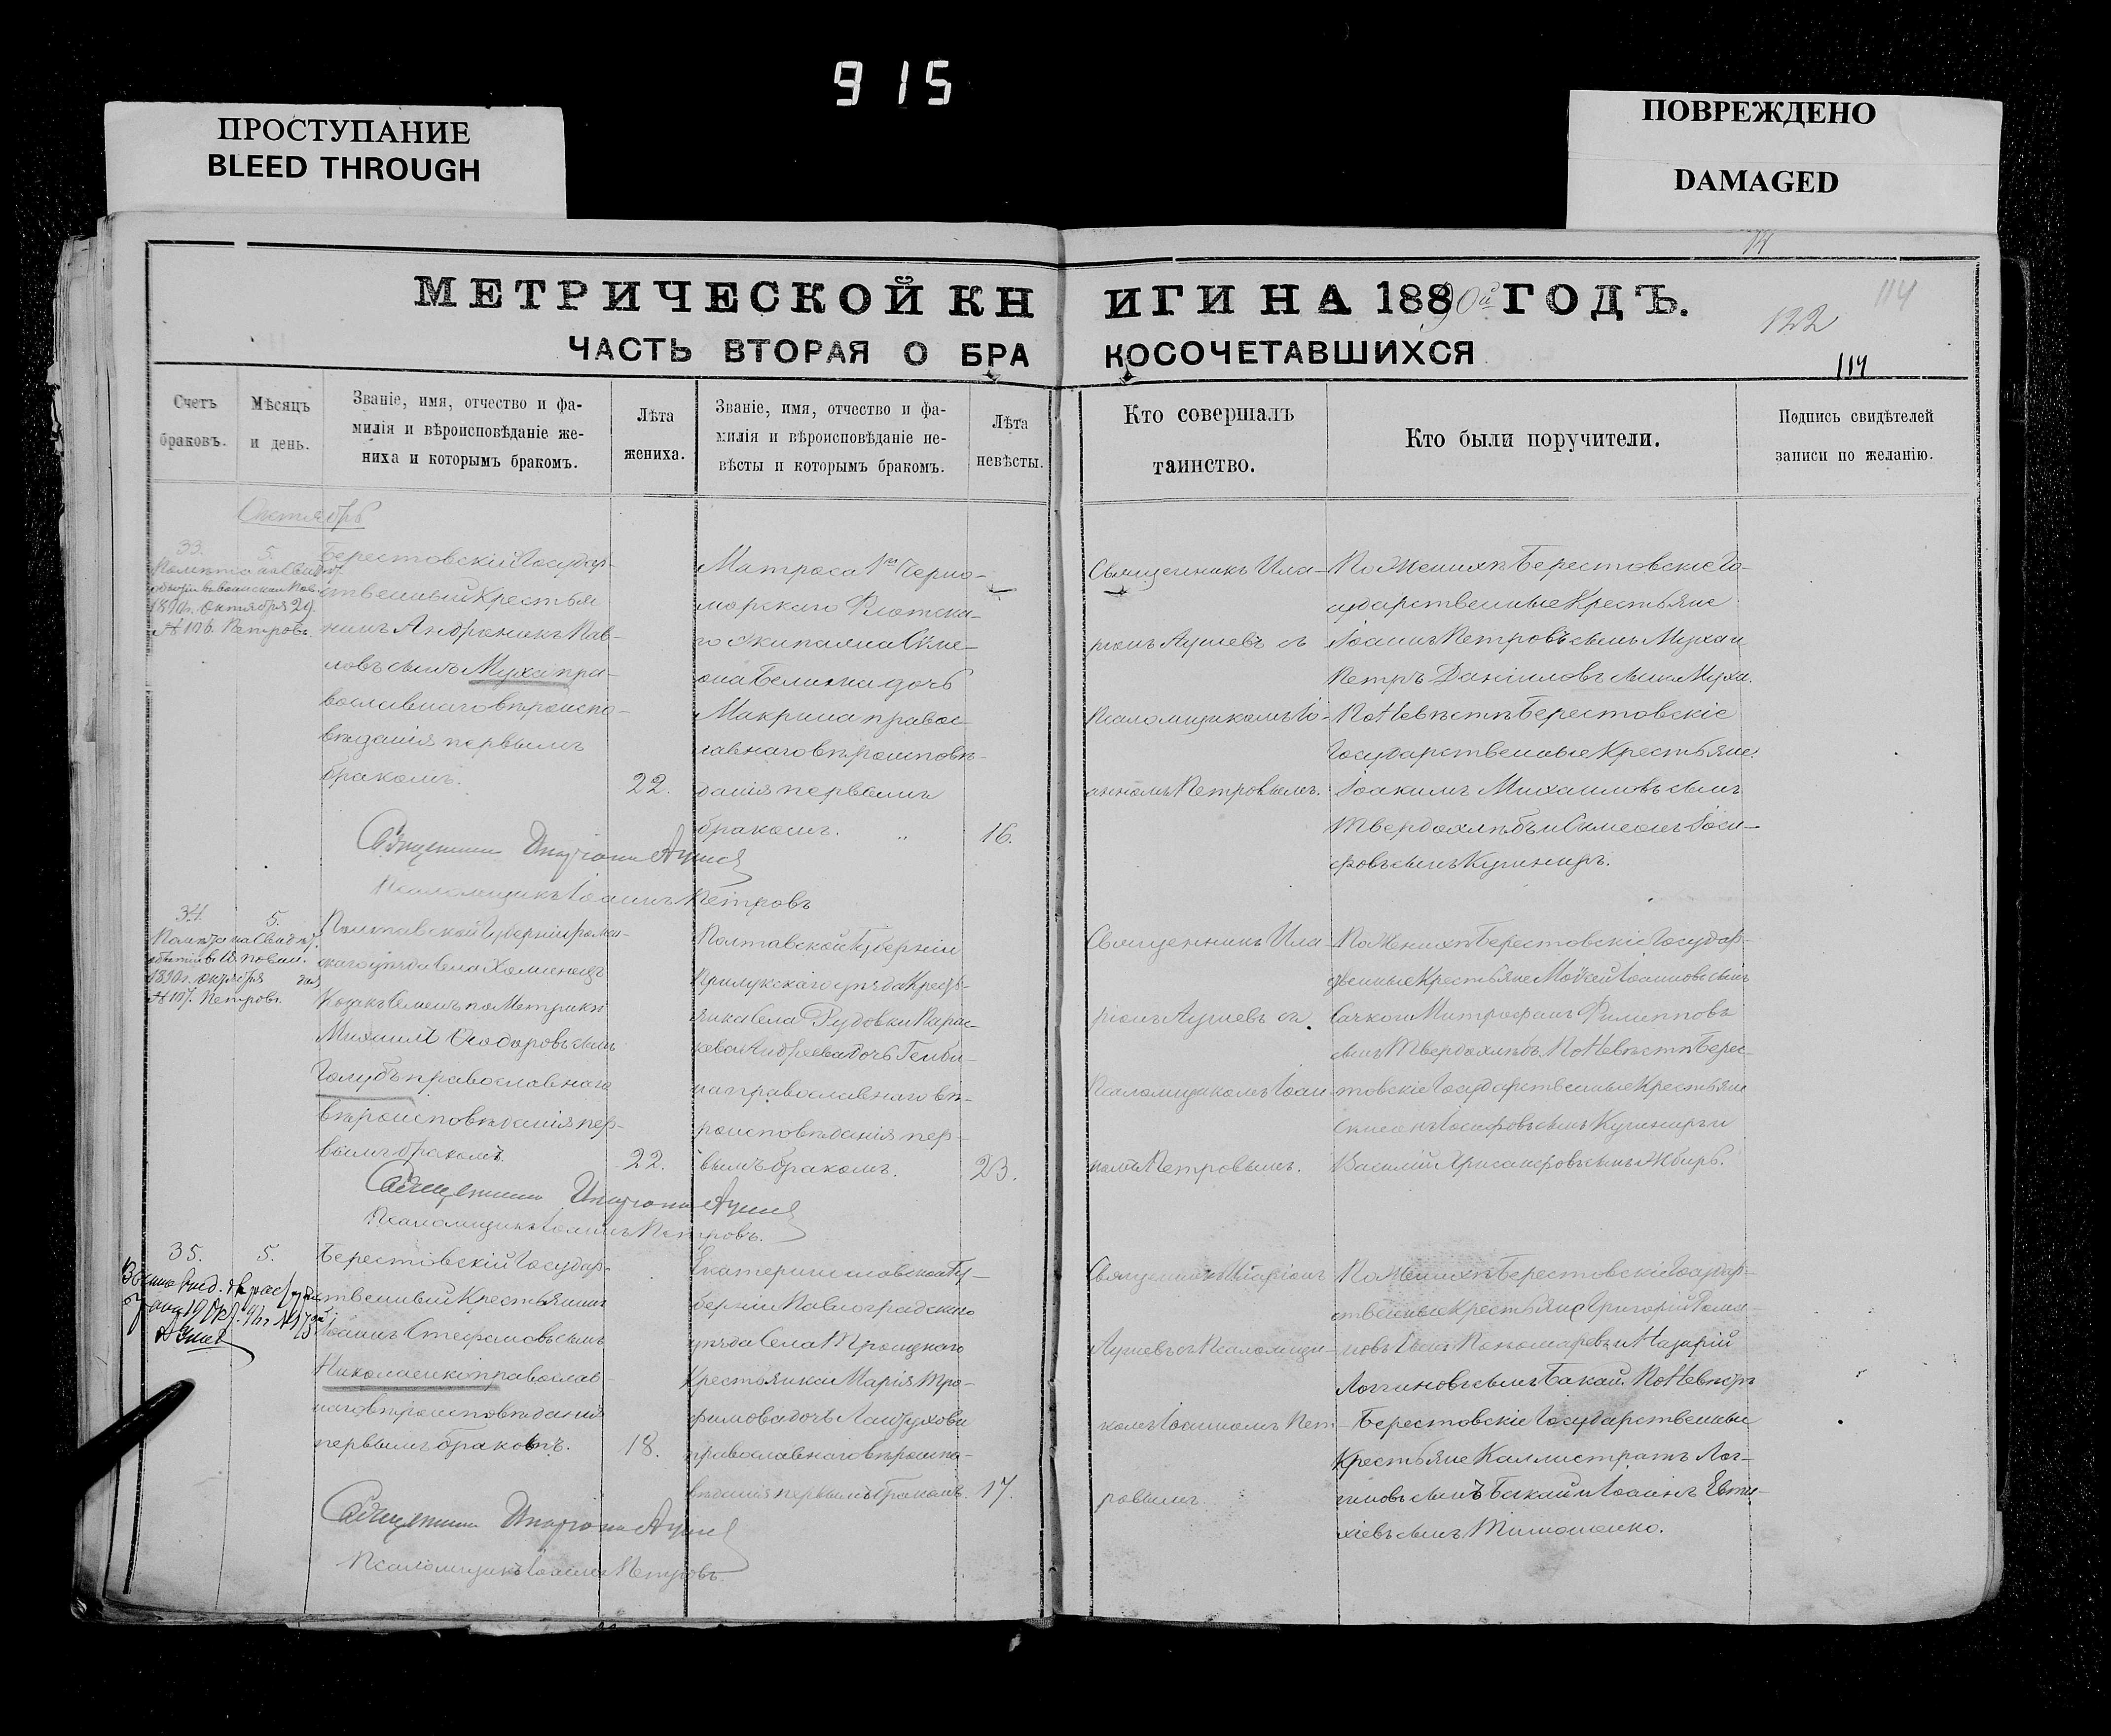 915
ПРОСТУПАНИЕ
BLEED THROUGH
ПОВРЕЖДЕНО
DAMAGED
МЕТРИЧЕСКОЙ КНИГИ НА 1890й ГОДЪ.
122
114
114
ЧАСТЬ ВТОРАЯ О БРАКОСОЧЕТАВШИХСЯ
Счетъ браковъ.
Мѣсяцъ и день.
Званіе, имя, отчество и фа-
милія и вѣроисповѣданіе же-
ниха и которымъ бракомъ.
Лѣта
жениха.
Званіе, имя, отчество и фа-
милія и вѣроисповѣданіе не-
вѣсты и которымъ бракомъ.
Лѣта
невѣсты.
Кто совершалъ
таинство.
Кто были поручители.
Подпись свидѣтелей
записи по желанію.
Октябрь
33.
5.
1890г. Октября 29.
№ 106. Петровъ
Берестовскій Государ-
ственный Крестья
нинъ Андроникъ Пав-
ловъ сынъ Муха пра-
вославнаго вѣроиспо-
вѣданія первымъ
бракомъ.
22.
Матроса 1го Черно-
морскаго Флотска-
го Экипажа Симе-
она Белика дочь
Макрина правос-
лавнаго вѣроисповѣ-
данія первымъ
бракомъ.
16.
Священникъ Ила-
ріонъ Ауліевъ съ
Псаломщикомъ Іо-
анномъ Петровымъ.
По Женихѣ Берестовскіе Го-
сударственные Крестьяне
Іоаннъ Петровъ сынъ Муха и
Петръ Даніиловъ сынъ Муха.
По Невѣстѣ Берестовскіе
Государственные Крестьяне:
Іоакимъ Михаиловъ сынъ
Твердохлѣбъ и Симеонъ Іоси-
фовъ сынъ Кушниръ.
Псаломщикъ Іоаннъ Петровъ
34.
5.
1890г. Октября
№ 107. Петровъ.
Полтавской Губерніи Ромен-
скаго уѣзда Села
Козакъ Семенъ по Метрикѣ
Михаилъ Ѳеодоровъ сынъ
Голубъ православнаго
вѣроисповѣданія пер-
вымъ бракомъ.
22.
Полтавской Губерніи
Прилукскаго уѣзда Крест-
янка Села Рудовки Парас-
кева Андреева дочь
православнаго вѣ-
роисповѣданія пер-
вымъ бракомъ.
23.
Священникъ Ила-
ріонъ Ауліевъ съ
Псаломщикомъ Іоан-
номъ Петровымъ.
По Женихѣ Берестовскіе Государ-
ственные Крестьяне Мойсей Іоанновъ сынъ
Сачко и Митрофанъ Филипповъ
сынъ Твердохлѣбъ. По Невѣстѣ Берес-
товскіе Государственные Крестьяне
Симеонъ Іосифовъ сынъ Кушниръ и
Василій Хрисанфовъ сынъ Жбиръ.
Псаломщикъ Іоаннъ Петровъ.
35.
5.
Берестовскій Государ-
ственный Крестьянинъ
Іоаннъ Стефановъ сынъ
Николаенко православ-
наго вѣроисповѣданія
первымъ бракомъ.
18.
Екатеринославской Гу-
берніи Павлоградскаго
уѣзда Села Троицкаго
Крестьянка Марія Тро-
фимова дочь
православнаго вѣроиспо-
вѣданія первымъ бракомъ.
17.
Священникъ Иларіонъ
Ауліевъ съ Псаломщи-
комъ Іоанномъ Пет-
ровымъ.
По Женихѣ Берестовскіе Государ-
ственные Крестьяне Григорій Рома-
новъ сынъ Пономаревъ и Назарій
Логгиновъ сынъ Бакай. По Невѣстѣ
Берестовскіе Государственные
Крестьяне Каллистратъ Лог-
гиновъ сынъ Бакай и Іоаннъ Евти-
хіевъ сынъ Тимошенко.
Псаломщикъ Іоаннъ Петровъ.